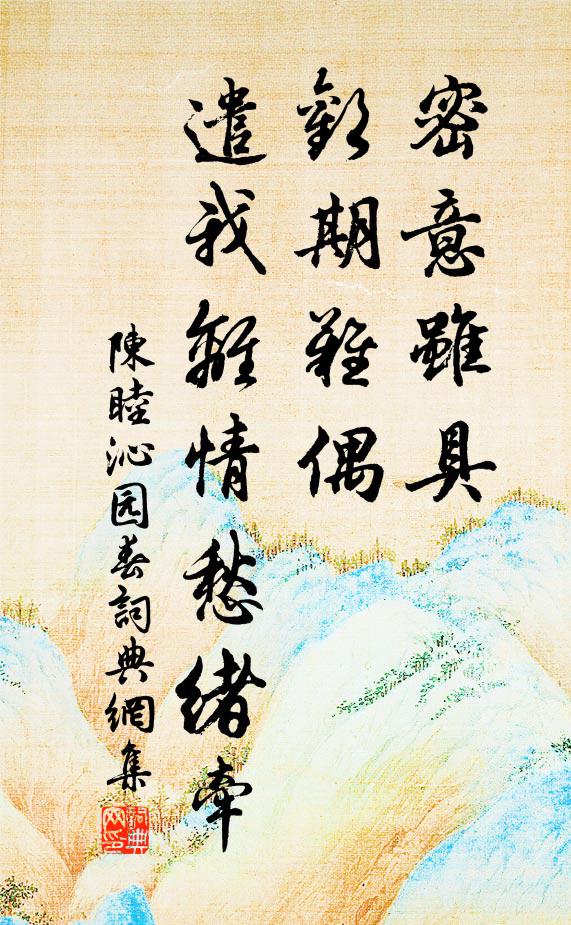 密意雖具
歡期難偶
遣我離情愁緒牽
陳睦沁园春詞典網集
詞典网印